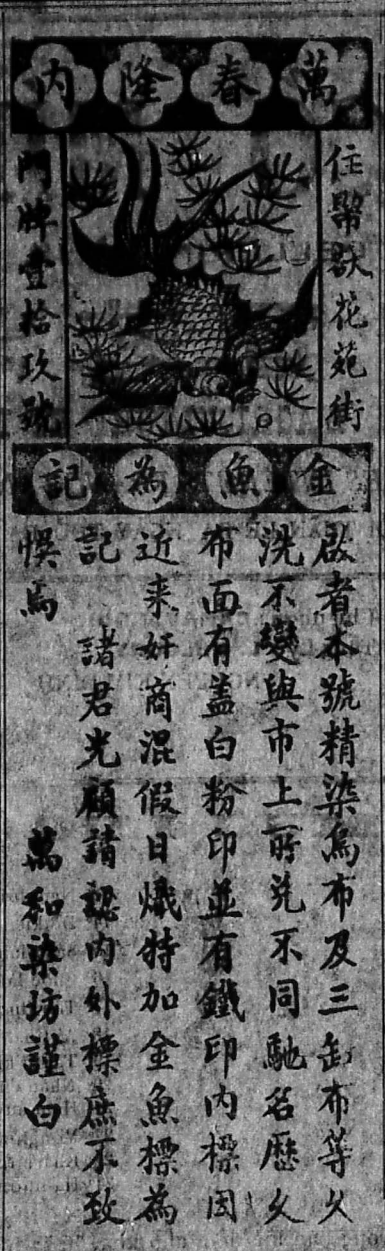 萬春隆內
住幣獃花苑街
門牌壹拾玖號
金魚為記
啟者本號精染烏布及三缸布等久
洗不變與市上所兌不同馳名歷久
布面有蓋白粉印並有鐵印內標因
近来奸商混假日熾特加金魚標為
記　諸君光顧請認內外標庶不致
悞焉　萬和染坊謹白